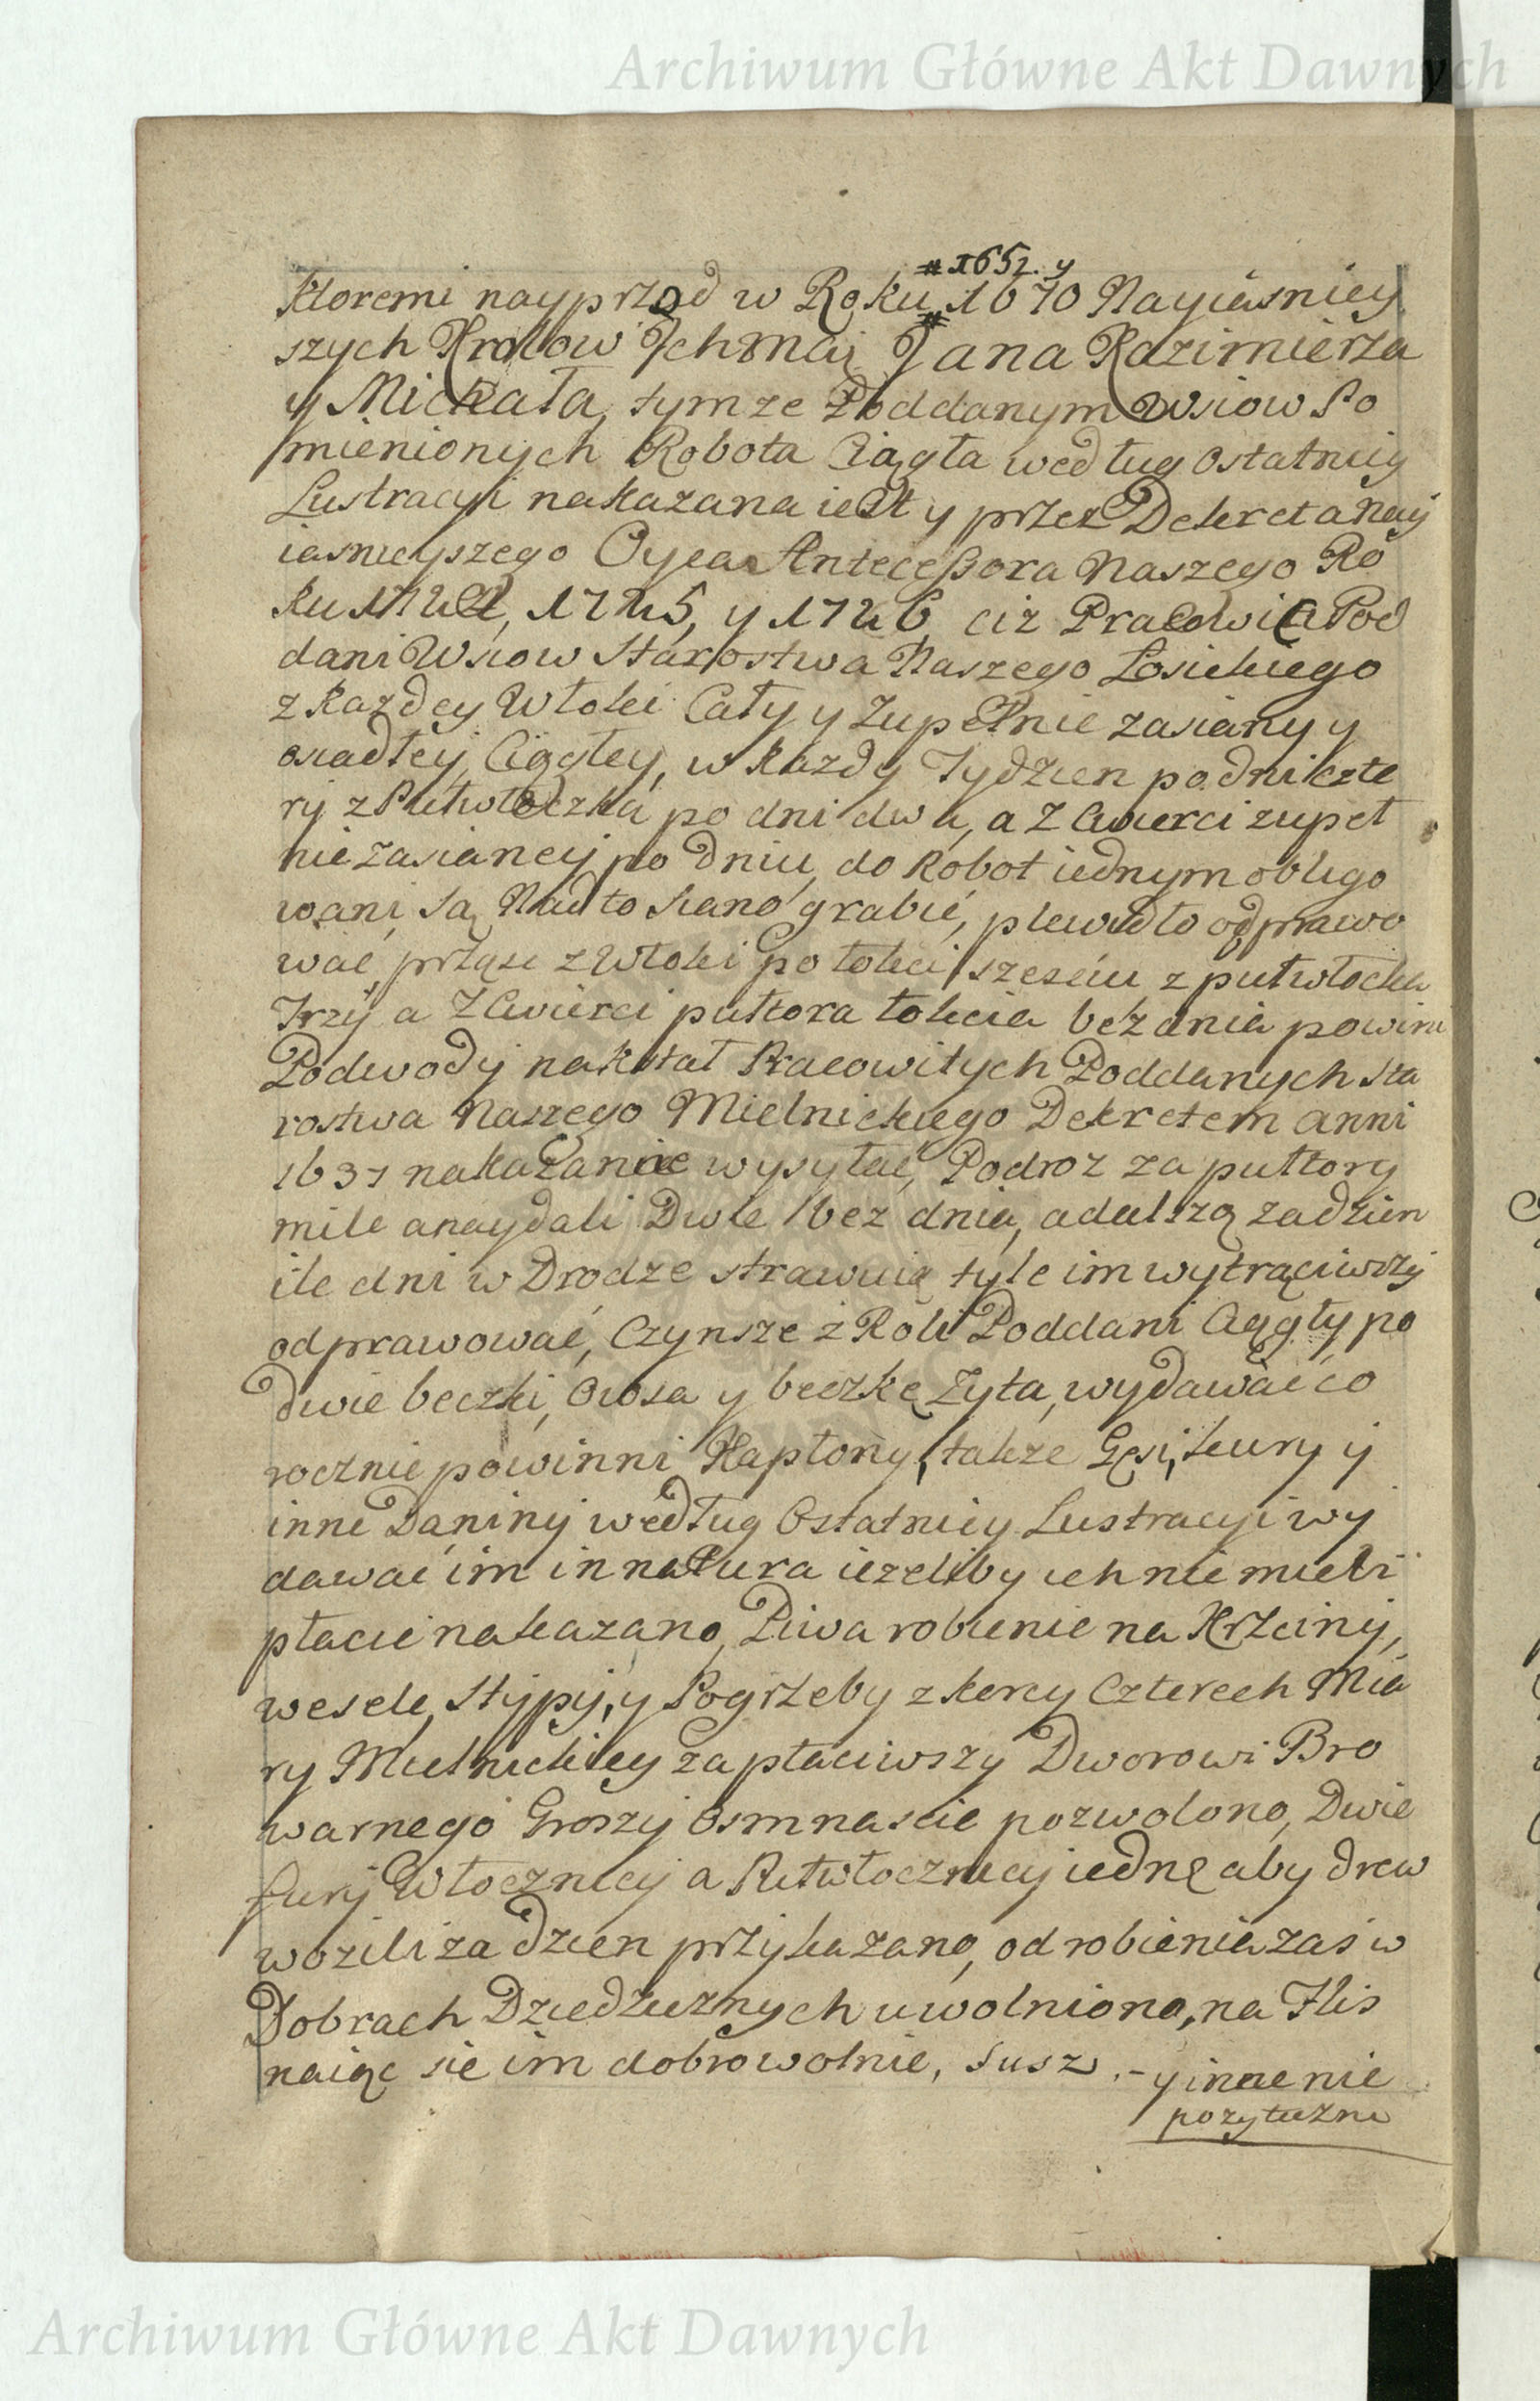 Archiwum Główne Akt Dawnych
# 1652. y
Ktoremi nayprzod w Roku # 1670 Nayiasniey
szych Krolow Ichmći Jana Kazimierza
y Michała, tymze Poddanym Wsiow Po
mienionych Robota Ciągła według Ostatniey
Lustracyi nakazana iest y przez Dekreta Nay
iasnieyszego Oyca Antecessora Naszego Ro
ku 1724, 1725, y 1726 ciż Pracowici Pod
dani Wsiow Starostwa Naszego Łosickiego
z Kazdey Włoki Cały y Zupełnie zasiany y
osiadłey, Ciągłey, w Kazdy Tydzien po dni czte
ry z Pułwłoczka po dni dwa, a z Cwierci zupeł
nie zasianey po Dniu, do Robot iednym obligo
wani są, Nad to siano grabić, plewidło odprawo
wać, prząść z Włoki po łokci szesciu z pułwłocka
Trzy a z Cwierci pułtora łokcia bez dnia powinni
Podwody na kstałt Pracowitych Poddanych Sta
rostwa Naszego Mielnickiego Dekretem anni
1637 nakazanie wysyłać, Podroz za pułtory
mile a naydali Dwie bez dnia, a dalszą za dzien
ile dni w Drodze strawią tyle im wytrąciwszy
odprawować, Czynsze z Roli Poddani Ciągły po
dwie beczki, Owsa y beczkę Zyta, wydawać co
rocznie powinni Kapłony, takze Gęsi, kury y
inne Daniny według Ostatniey Lustracyi wy
dawać im in natura iezeliby ich nie mieli
płacić nakazano, Piwa robienie na Krzciny,
wesele, Stypy, y Pogrzeby z korcy Czterech Mia
ry Mielnickiey zapłaciwszy Dworowi Bro
warnego Groszy Osmnascie pozwolono, Dwie
fury Włoczney a Pułwłoczney iednę aby drew
wozili za dzien przykazano, od robienia zas w
Dobrach Dziedzicznych uwolniono, na Flis
naiąc się im dobrowolnie, susz .- y inne nie
pozyteczne
Archiwum Główne Akt Dawnych